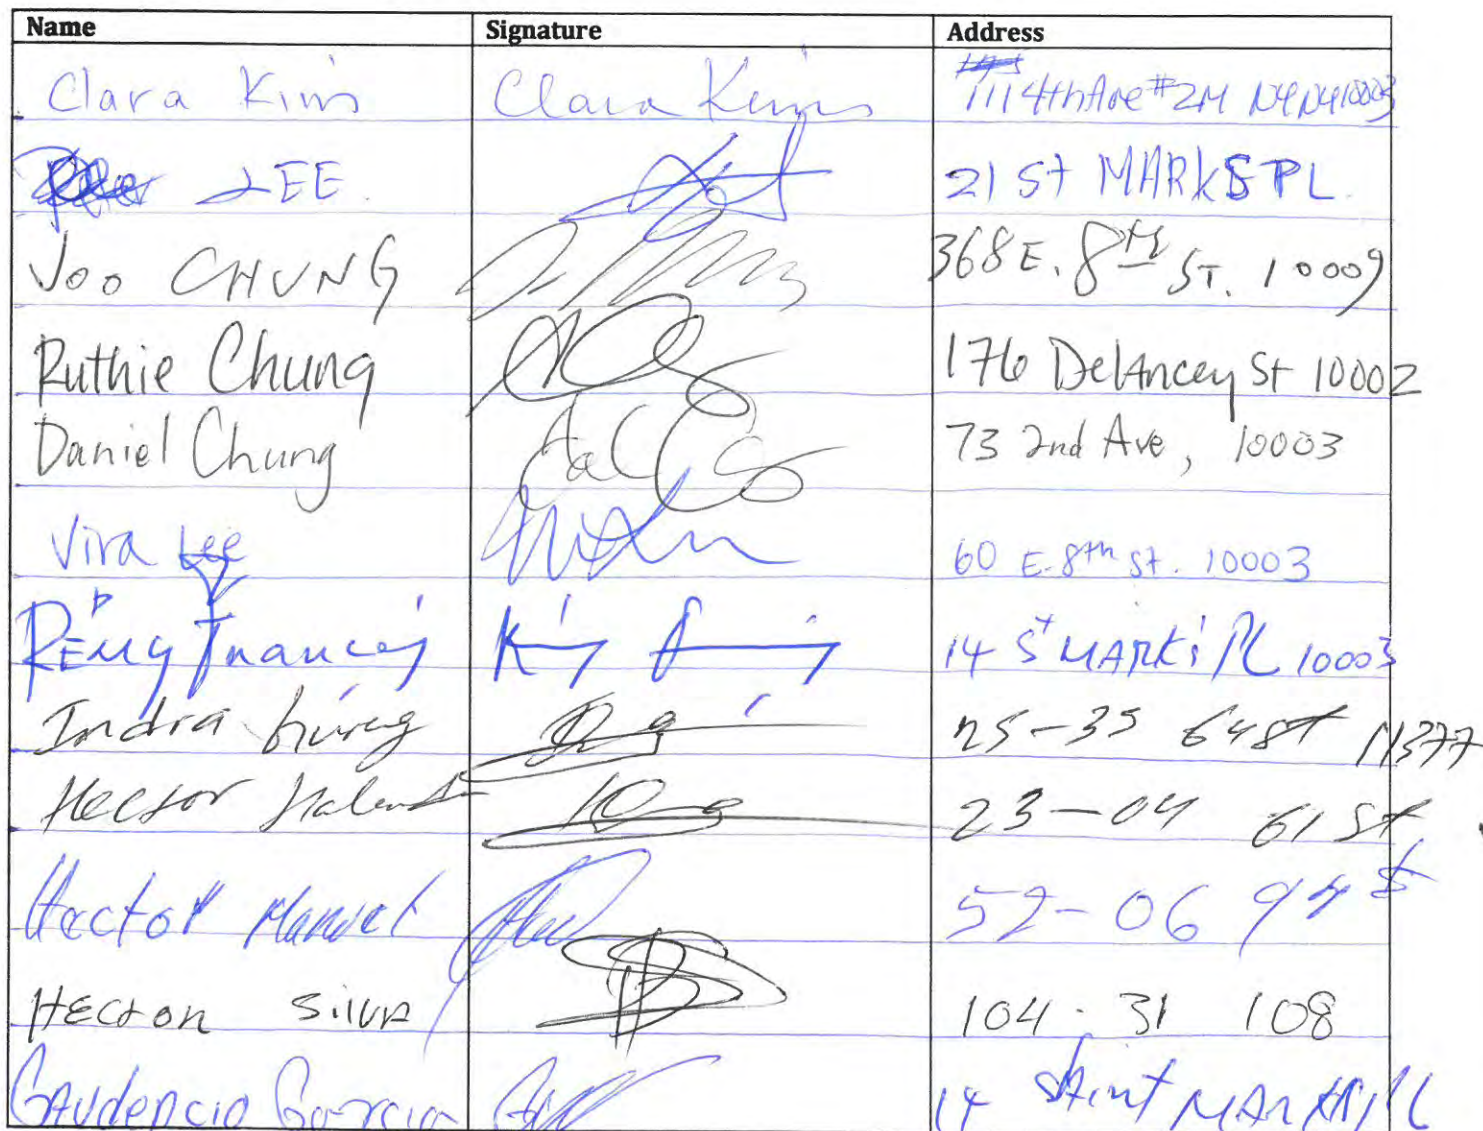 Name Signature Address
Clara Kim Clara Kim 111 4th Ave #2M NY NY 10003
LEE 21 St MARKS PL.
JOO CHUNG 368 E. 8th ST. 10009
Ruthie Chung 176 Delancey St 10002
Daniel Chung 73 2nd Ave, 10003
Vira Lee 60 E. 8th St. 10003
REMY 14 St MARK'S PL 10003
Indra 25-35 64 St 11377
Hector 23-04 61 St
Hector Manuel 52-06 94 St
HECTOR SILVA 104-31 108
GAUDENCIO Garcia 14 Saint MARKS PL